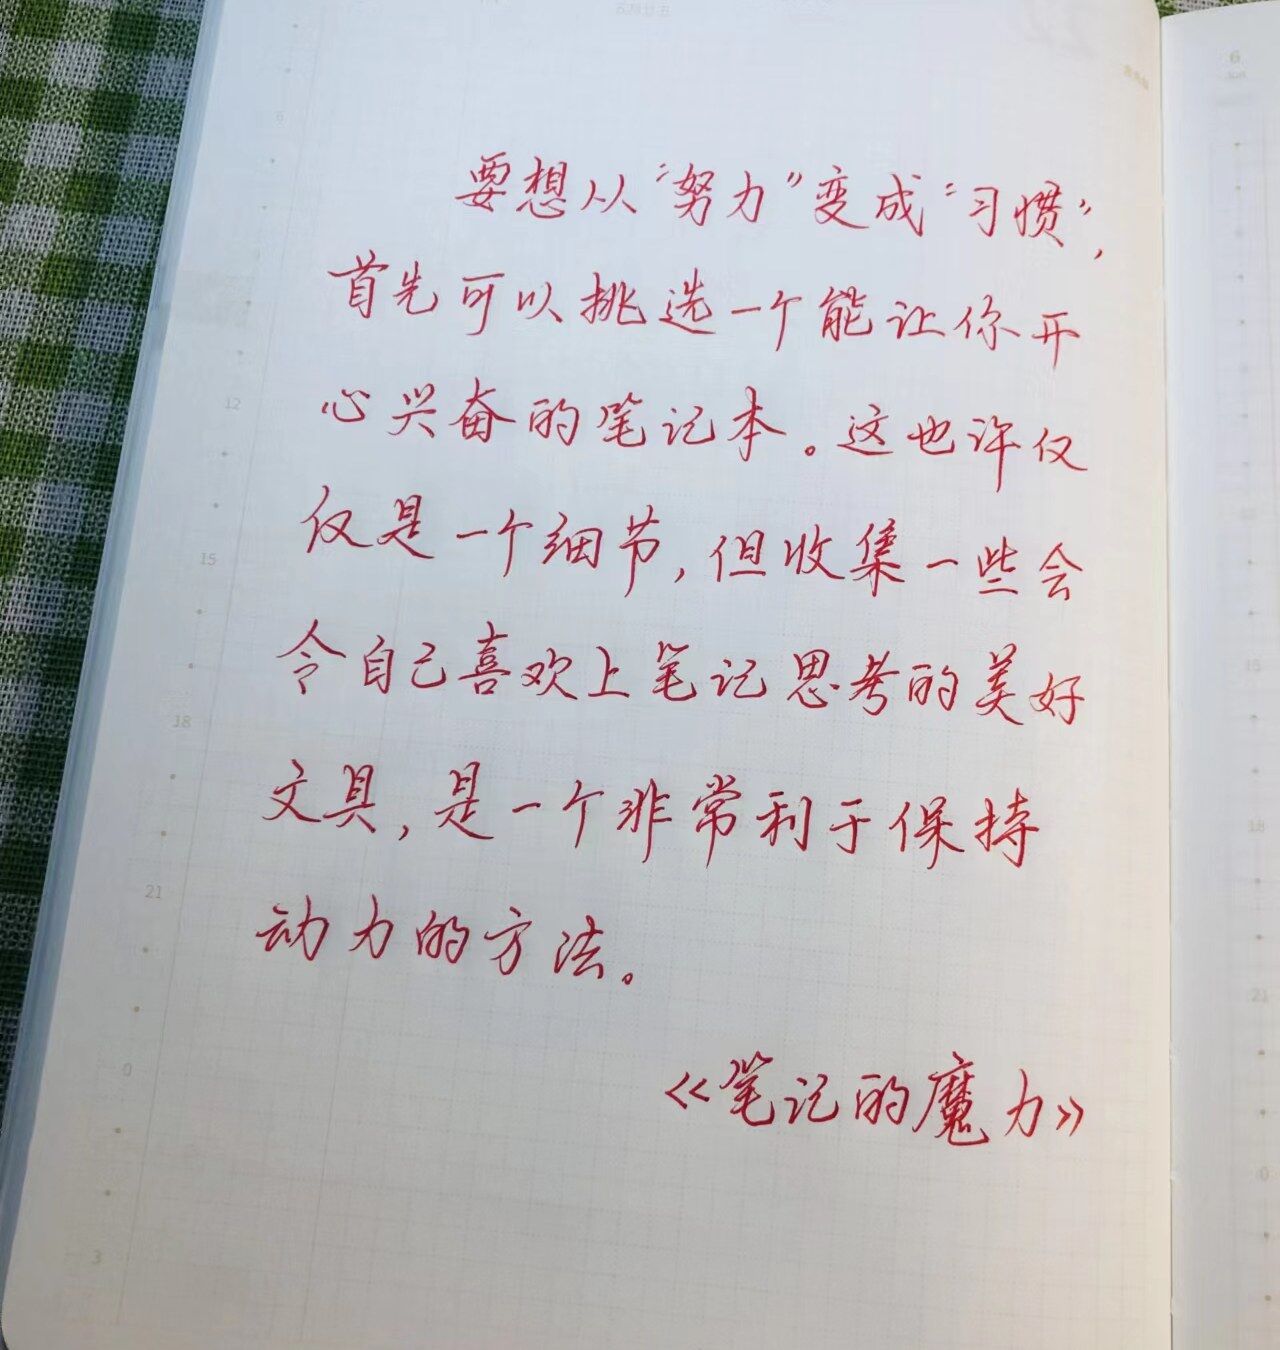 要想从“努力”变成“习惯”,
首先可以挑选一个能让你开
心兴奋的笔记本。这也许仅
仅是一个细节,但收集一些会
令自己喜欢上笔记思考的美好
文具,是一个非常利于保持
动力的方法。
《笔记的魔力》
6
12
15
18
21
0
3
6
15
18
21
0